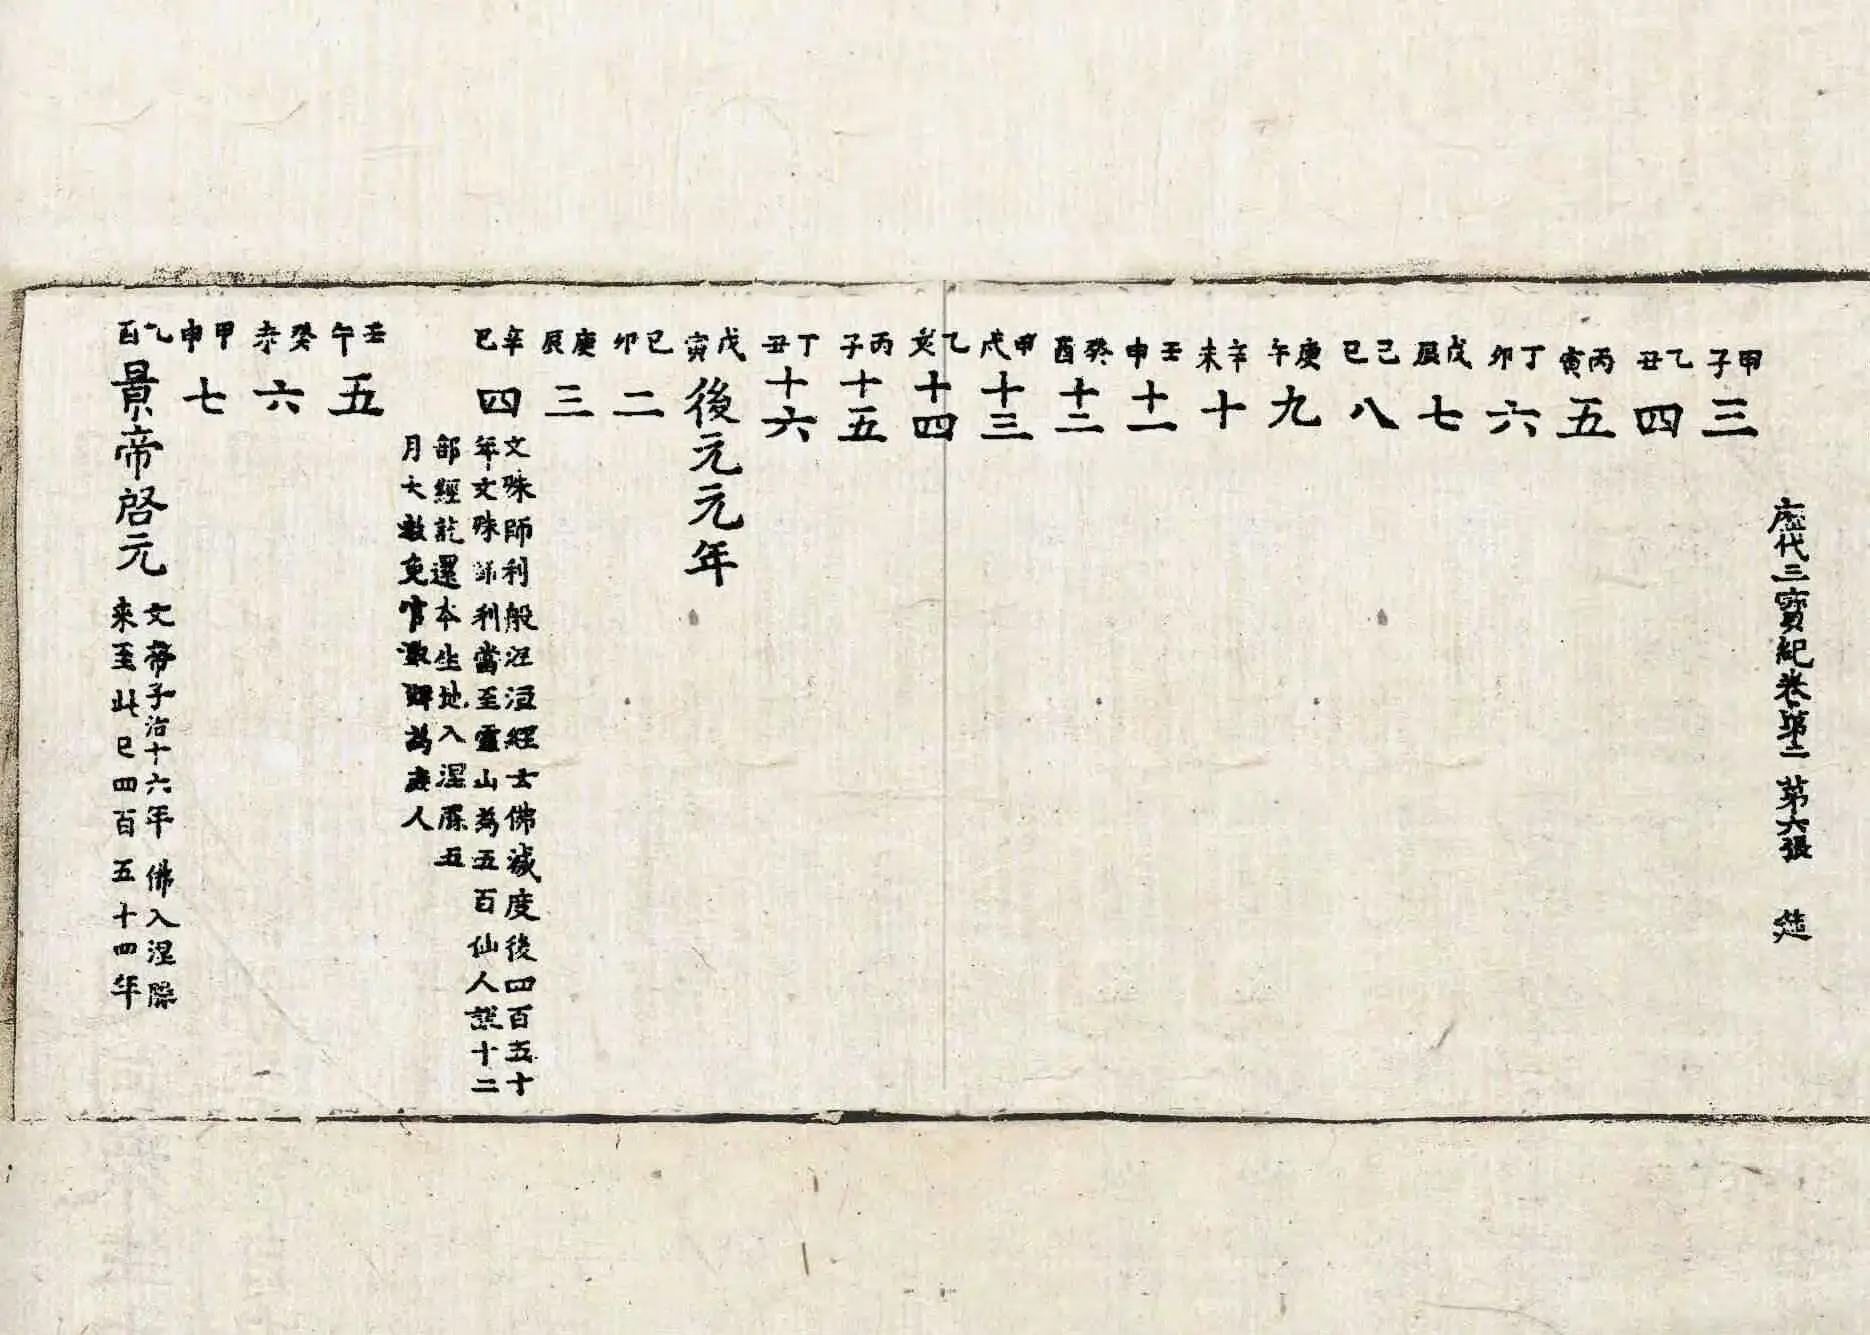 歷代三寶紀卷第二 第六張 筵
甲子 三
乙丑 四
丙寅 五
丁卯 六
戊辰 七
己巳 八
庚午 九
辛未 十
壬申 十一
癸酉 十二
甲戌 十三
乙亥 十四
丙子 十五
丁丑 十六
戊寅 後元元年
己卯 二
庚辰 三
辛巳 四
文殊師利般泥洹經云佛滅度後四百五十
年文殊師利當至雪山為五百仙人說十二
部經訖還本生地入涅槃五
月大赦免官奴婢為庶人
壬午 五
癸未 六
甲申 七
乙酉 景帝啓元
文帝子治十六年 佛入涅槃
來至此已四百五十四年